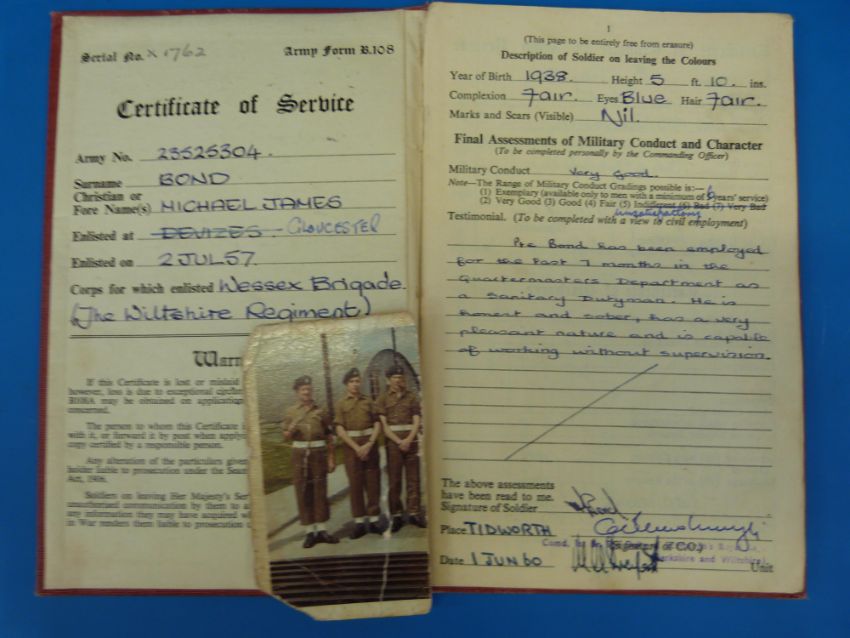 Serial No. X 1762
Army Form B.108
Certificate of Service
Army No. 23525304.
Surname BOND
Christian or
Fore Name(s) MICHAEL JAMES
Enlisted at DEVIZES - GLOUCESTER
Enlisted on 2 JUL 57.
Corps for which enlisted Wessex Brigade
(The Wiltshire Regiment)
Warn
If this Certificate is lost or mislaid
however, loss is due to exceptional
B108A may be obtained on application
concerned.
The person to whom this Certificate i
with it, or forward it by post when apply
copy certified by a responsible person.
Any alteration of the particulars given
holder liable to prosecution under the Seam
Act, 1906.
Soldiers on leaving Her Majesty's Ser
unauthorised communication by them to a
any information they may have acquired wh
in War renders them liable to prosecution
1
(This page to be entirely free from erasure)
Description of Soldier on leaving the Colours
Year of Birth 1938. Height 5 ft. 10. ins.
Complexion Fair. Eyes Blue Hair Fair.
Marks and Scars (Visible) Nil.
Final Assessments of Military Conduct and Character
(To be completed personally by the Commanding Officer)
Military Conduct Very Good.
Note—The Range of Military Conduct Gradings possible is:—
(1) Exemplary (available only to men with a minimum of 6 years' service)
(2) Very Good (3) Good (4) Fair (5) Indifferent (6) Bad (7) Very Bad
unsatisfactory
Testimonial. (To be completed with a view to civil employment)
Pte Bond has been employed
for the last 7 months in the
Quartermasters Department as
a Sanitary Dutyman. He is
honest and sober, has a very
pleasant nature and is capable
of working without supervision.
The above assessments
have been read to me.
Signature of Soldier
Place TIDWORTH
Date 1 JUN 60
Berkshire and Wiltshire) Unit